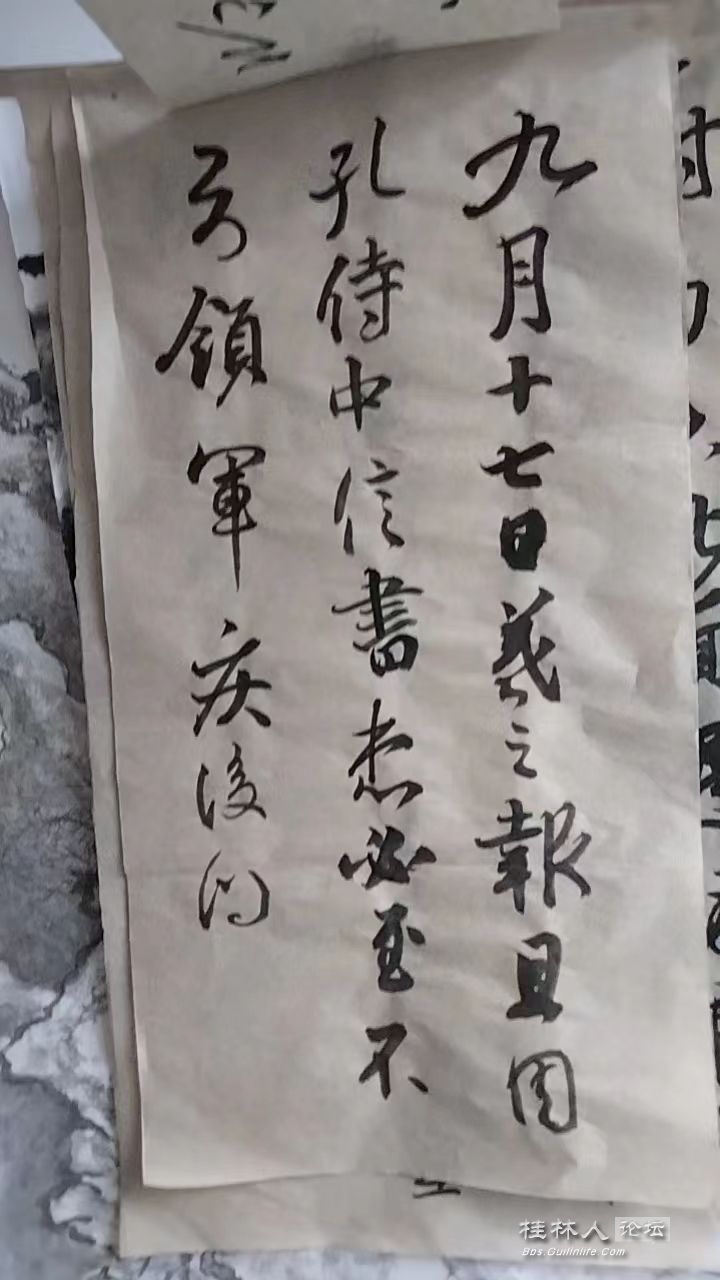 九月十七日羲之報且因
孔侍中信書想必至不
知領軍疾後問
桂林人论坛
Bbs.Guilinlife.Com